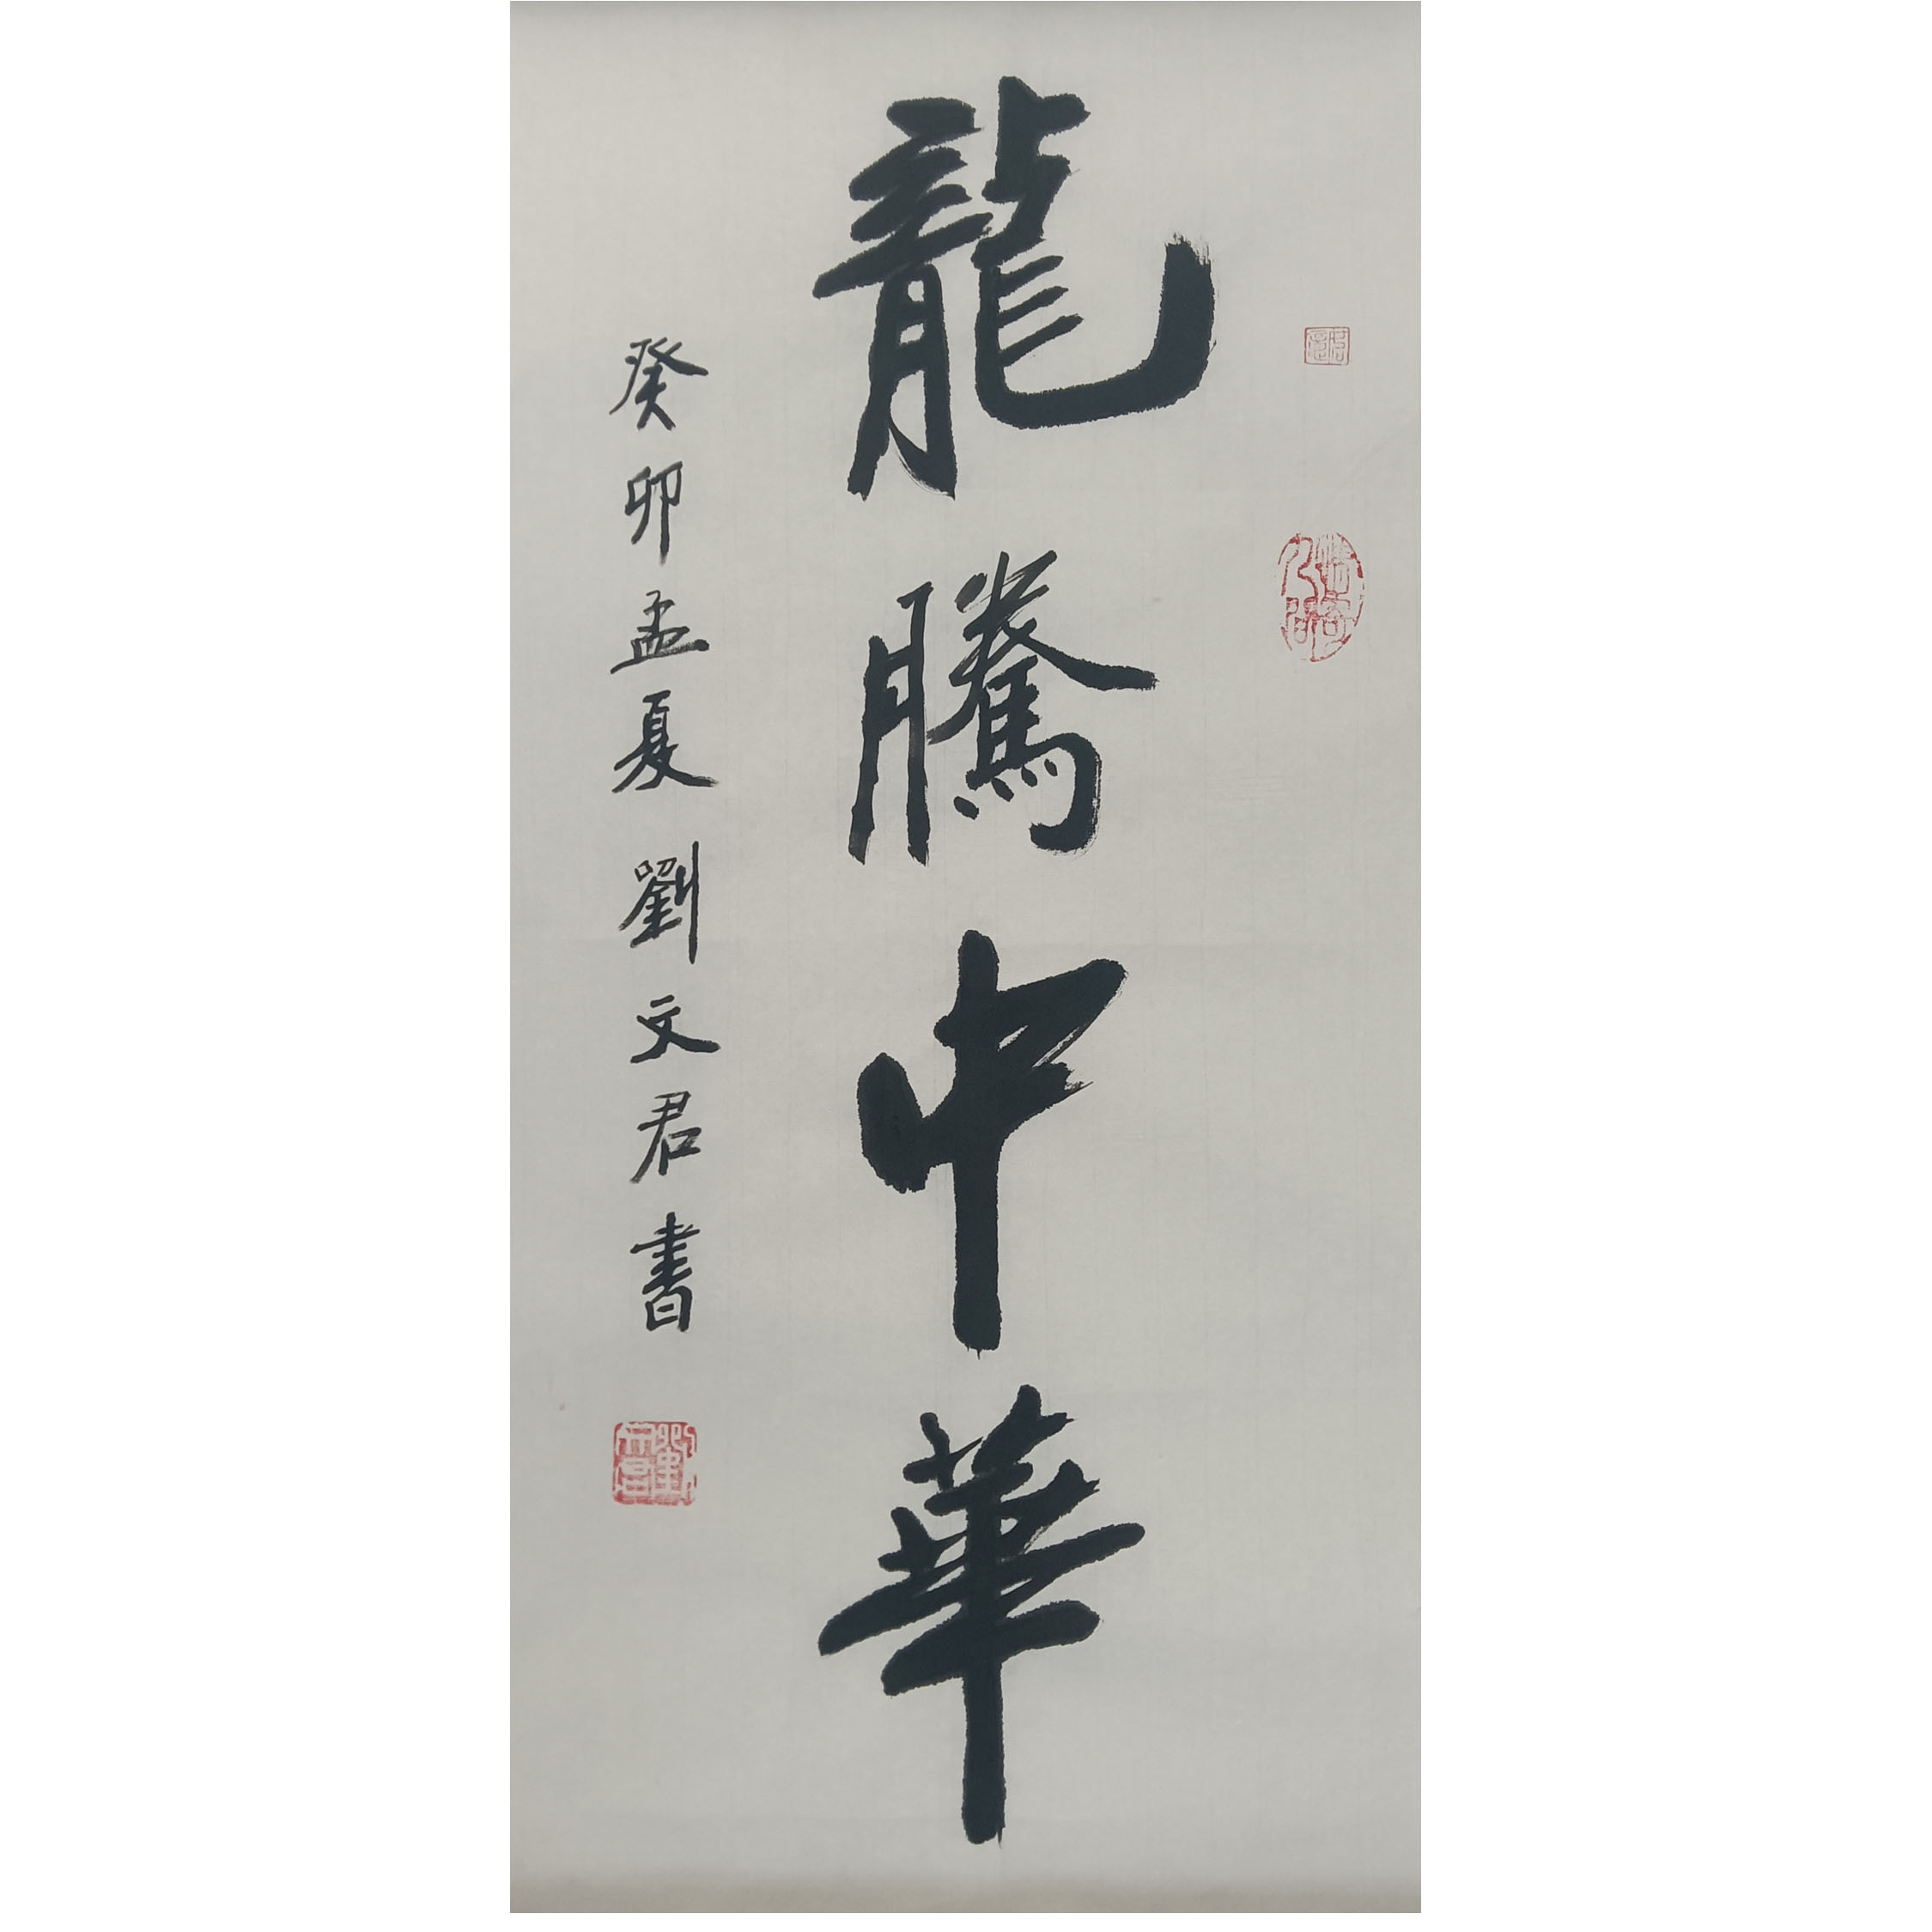 龍騰中華
癸卯孟夏劉文君書
劉文君